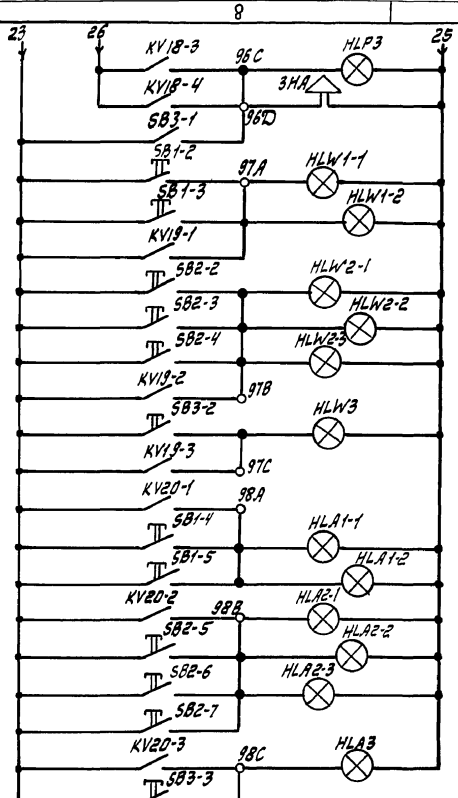 8
23 26 25
KV18-3 96C HLP3
KV18-4 3HA
96D
SB3-1
SB1-2 97A HLW1-1
SB1-3 HLW1-2
KV19-1
SB2-2 HLW2-1
SB2-3 HLW2-2
SB2-4 HLW2-3
KV19-2 97B
SB3-2 HLW3
KV19-3 97C
KV20-1 98A
SB1-4 HLA1-1
SB1-5 HLA1-2
KV20-2 98B HLA2-1
SB2-5 HLA2-2
SB2-6 HLA2-3
SB2-7
KV20-3 98C HLA3
SB3-3